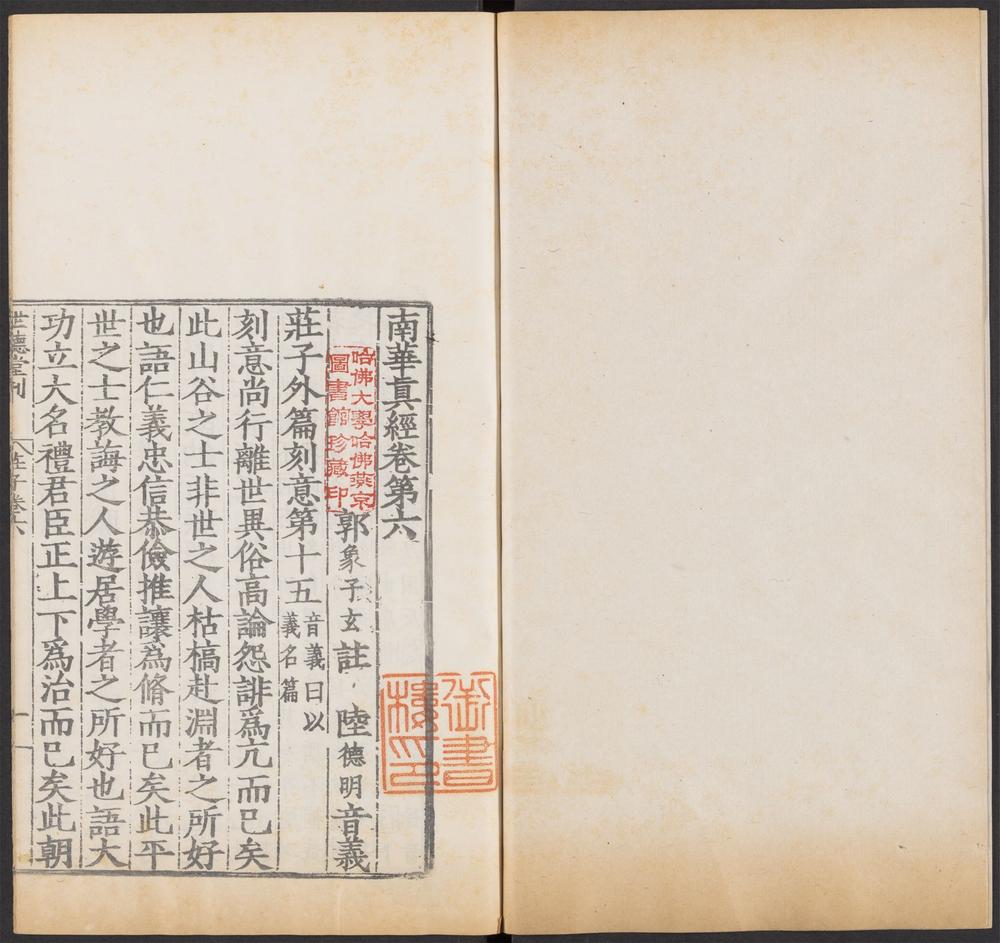 南華眞經卷第六
郭象子玄註 陸德明音義
莊子外篇刻意第十五 音義曰以義名篇
刻意尚行離世異俗高論怨誹爲亢而已矣
此山谷之士非世之人枯槁赴淵者之所好
也語仁義忠信恭儉推讓爲脩而已矣此平
世之士教誨之人遊居學者之所好也語大
功立大名禮君臣正上下爲治而已矣此朝
世德堂刊 莊子卷六 一
哈佛大學哈佛燕京
圖書館珍藏印
御書
樓印